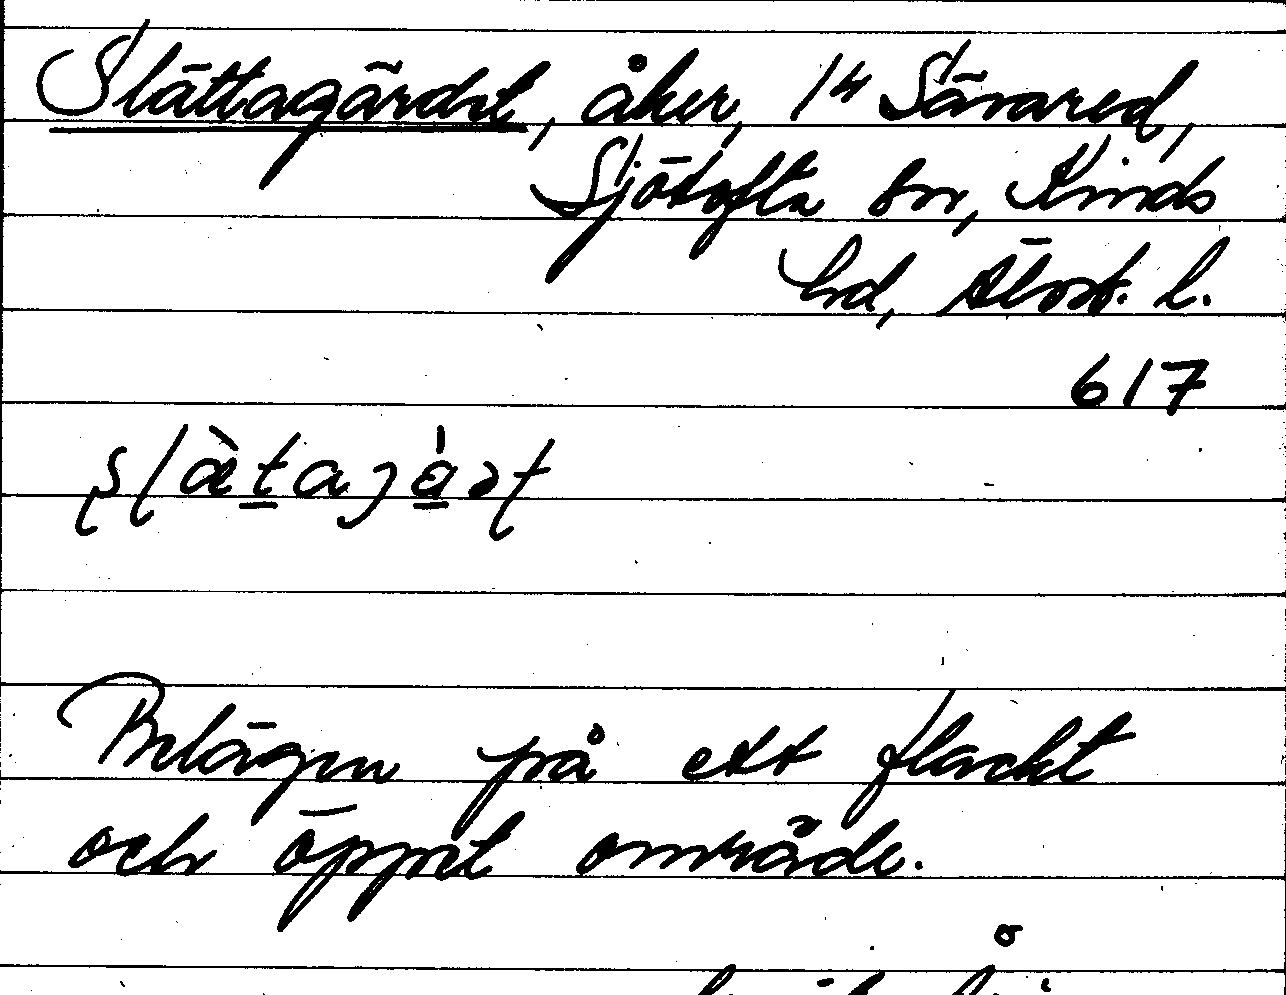 Slättagärdet, åker, 1⁴ Sävared,
Sjötofta sn, Kinds
hd, Älvsb. l.
617
Belägen på ett flackt
och öppet område.